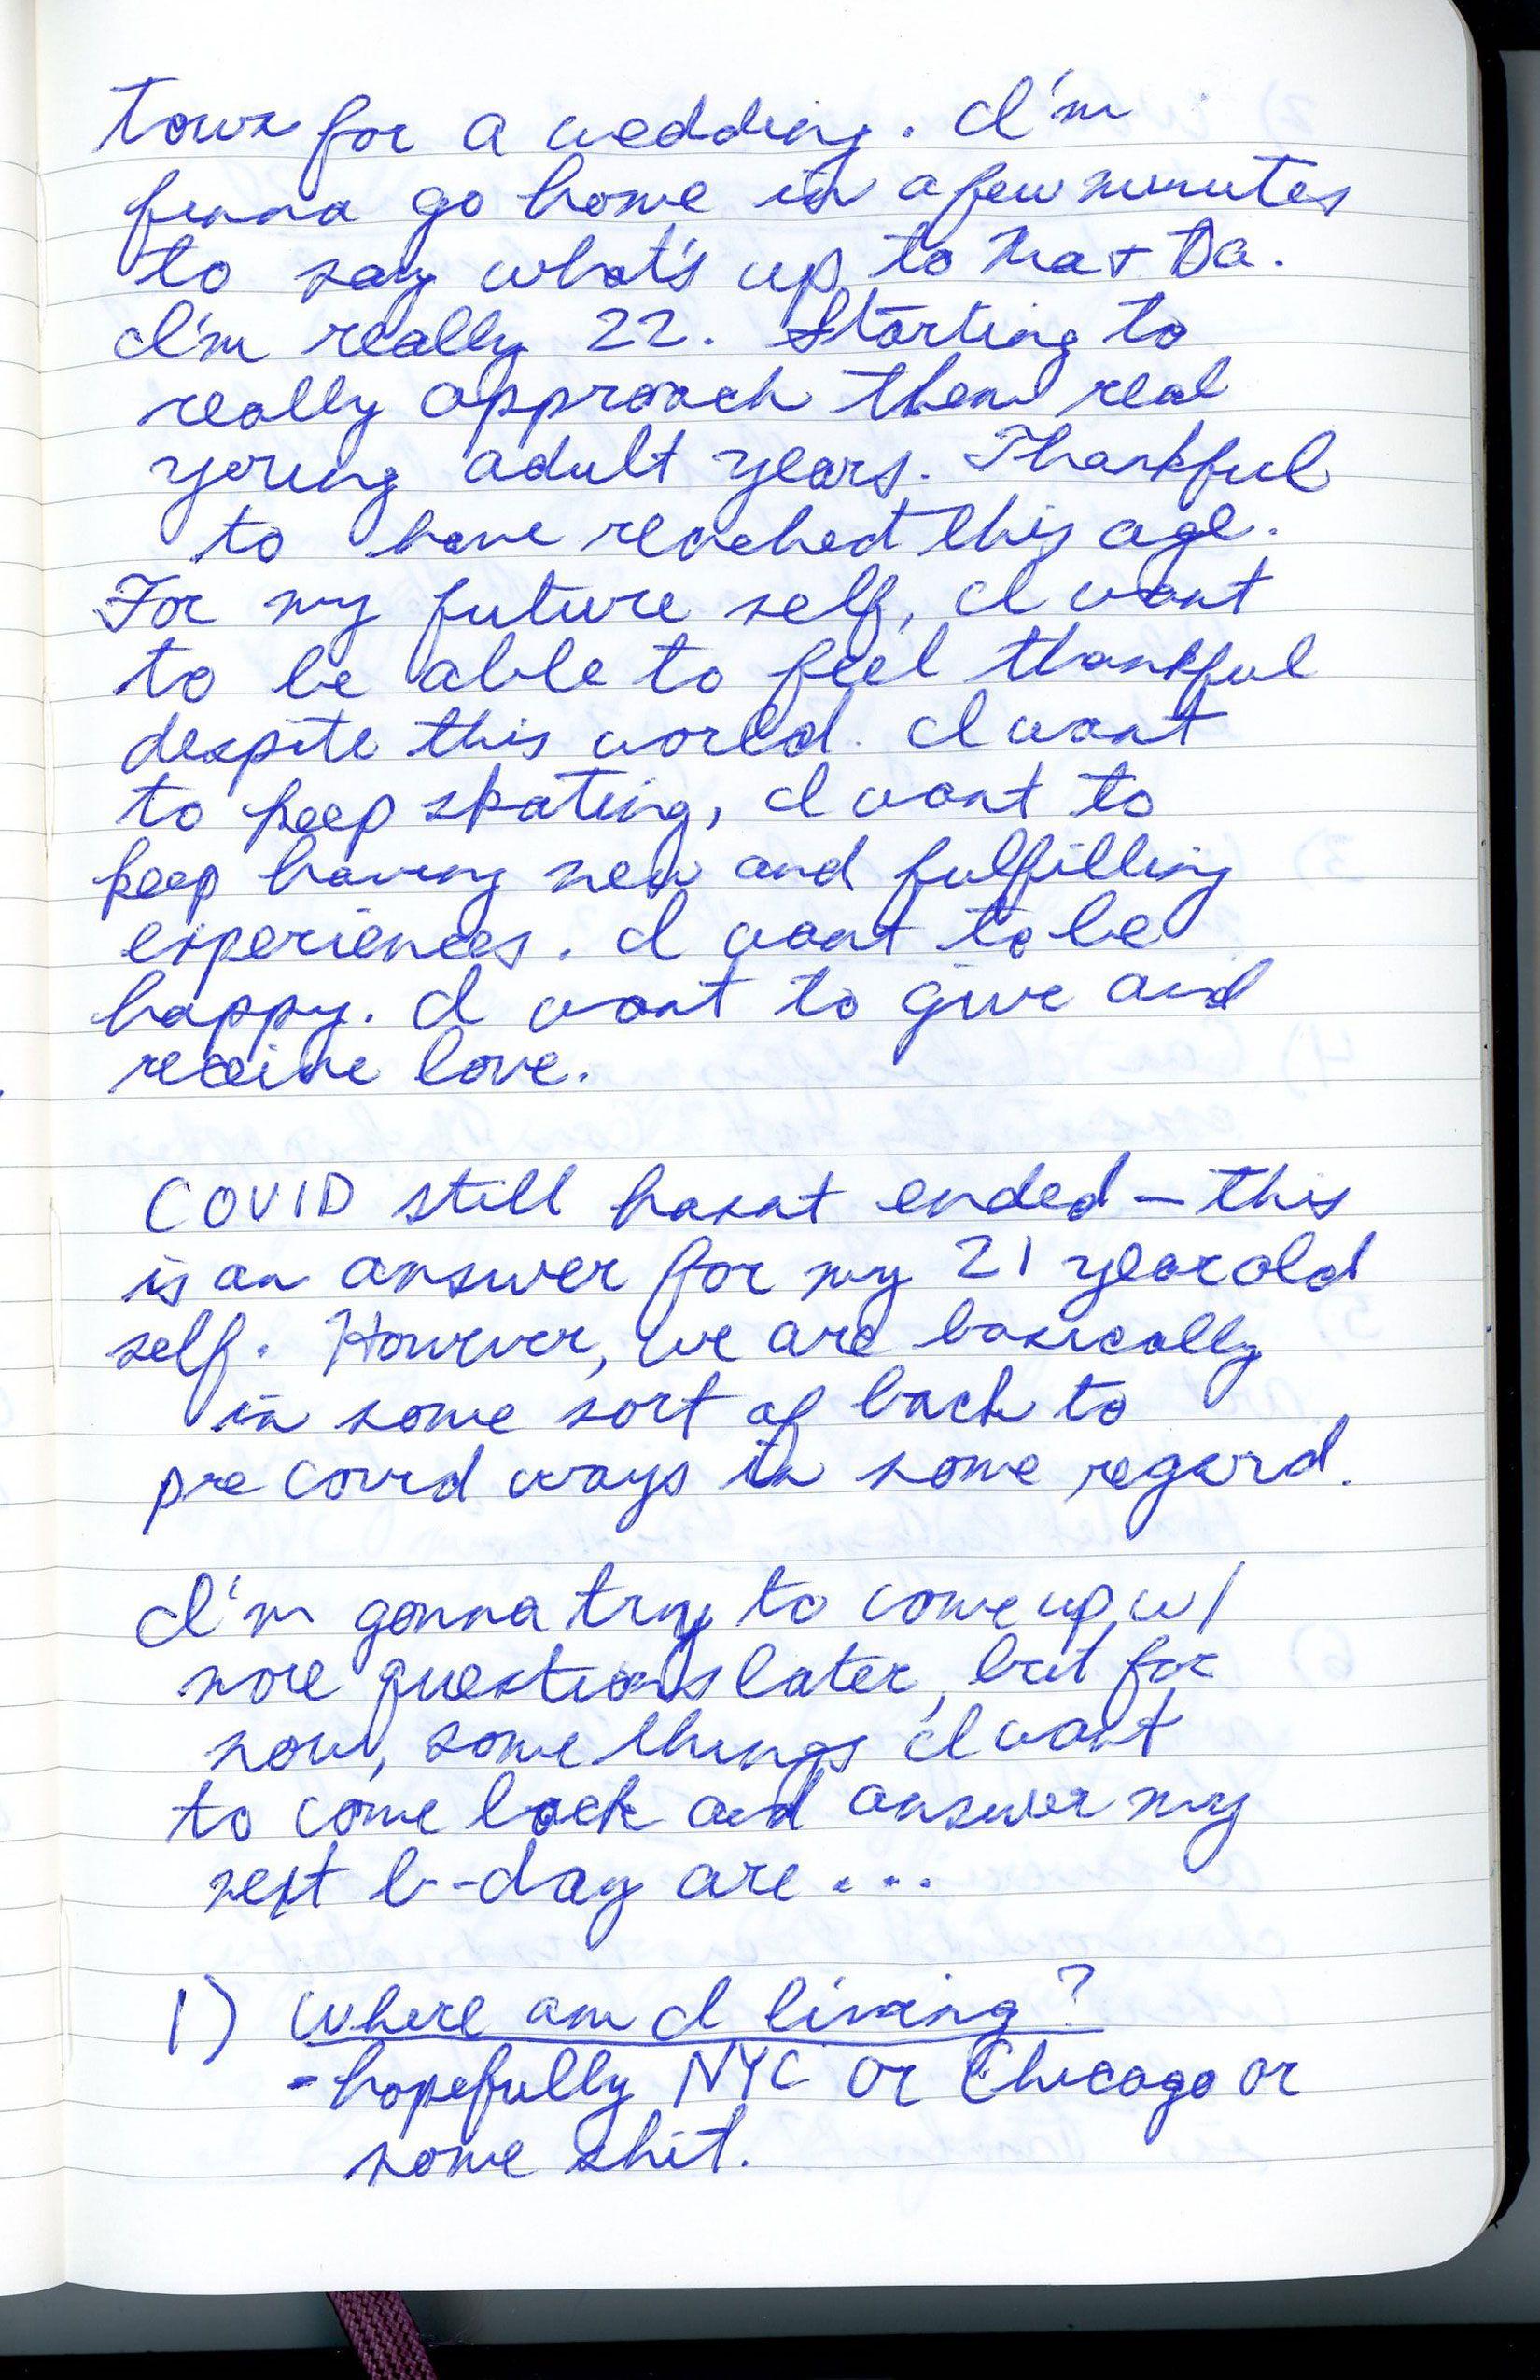 town for a wedding. I'm
finna go home in a few minutes
to say what's up to Ma + Da.
I'm really 22. Starting to
really approach them real
young adult years. Thankful
to have reached this age.
For my future self, I want
to be able to feel thankful
despite this world. I want
to keep skating, I want to
keep having new and fulfilling
experiences. I want to be
happy. I want to give and
receive love.
COVID still hasnt ended – this
is an answer for my 21 year old
self. However, we are basically
in some sort of back to
pre covid ways in some regard.
I'm gonna try to come up w/
more questions later, but for
now, some things I want
to come back and answer my
next b-day are...
1) Where am I living?
- hopefully NYC or Chicago or
some shit.